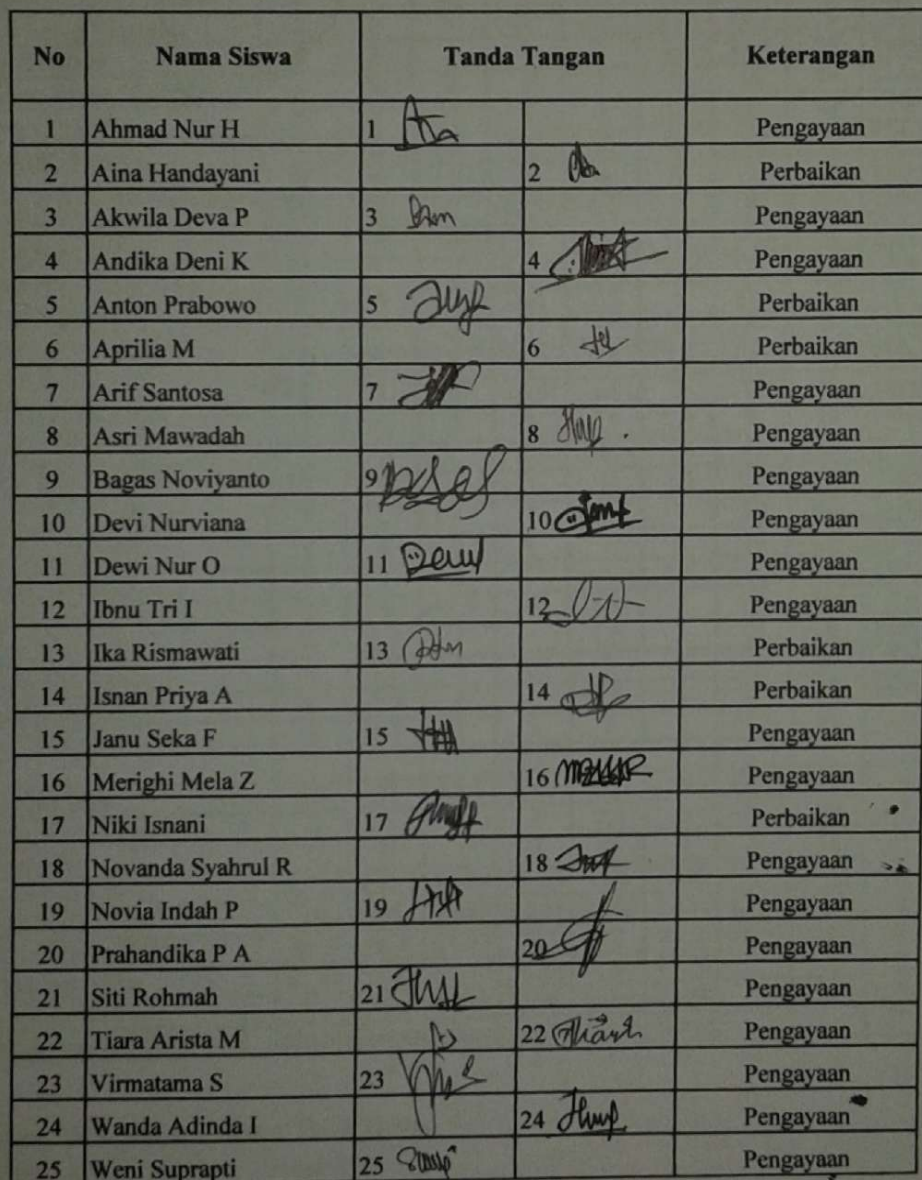 No Nama Siswa Tanda Tangan Keterangan
1 Ahmad Nur H 1 Pengayaan
2 Aina Handayani 2 Perbaikan
3 Akwila Deva P 3 Pengayaan
4 Andika Deni K 4 Pengayaan
5 Anton Prabowo 5 Perbaikan
6 Aprilia M 6 Perbaikan
7 Arif Santosa 7 Pengayaan
8 Asri Mawadah 8 Pengayaan
9 Bagas Noviyanto 9 Pengayaan
10 Devi Nurviana 10 Pengayaan
11 Dewi Nur O 11 Pengayaan
12 Ibnu Tri I 12 Pengayaan
13 Ika Rismawati 13 Perbaikan
14 Isnan Priya A 14 Perbaikan
15 Janu Seka F 15 Pengayaan
16 Merighi Mela Z 16 Pengayaan
17 Niki Isnani 17 Perbaikan
18 Novanda Syahrul R 18 Pengayaan
19 Novia Indah P 19 Pengayaan
20 Prahandika P A 20 Pengayaan
21 Siti Rohmah 21 Pengayaan
22 Tiara Arista M 22 Pengayaan
23 Virmatama S 23 Pengayaan
24 Wanda Adinda I 24 Pengayaan
25 Weni Suprapti 25 Pengayaan